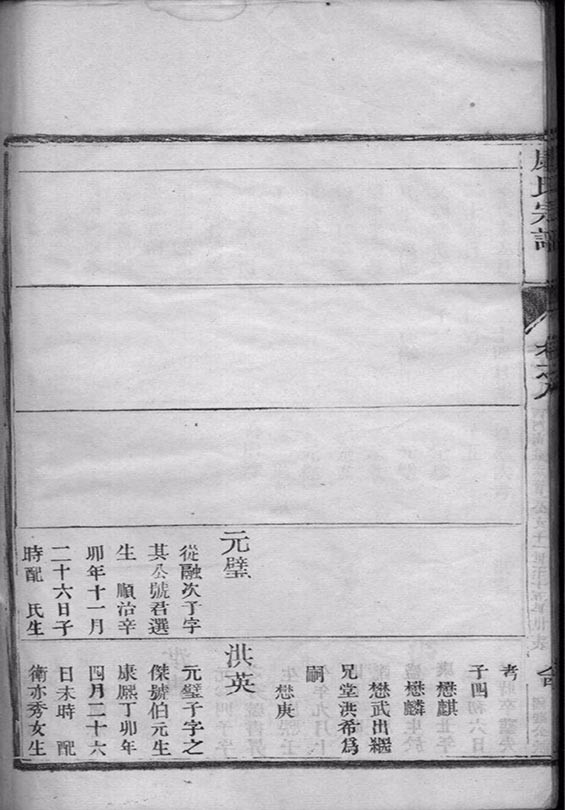 氏宗譜
元璧
從融次子字
其公號君選
生 順治辛
卯年十一月
二十六日子
時配 氏生
考
子四
懋麒
懋麟
懋武出繼
兄堂洪希爲
嗣
懋庚
洪英
元璧子字之
傑號伯元生
康熙丁卯年
四月二十六
日未時 配
衛亦秀女生